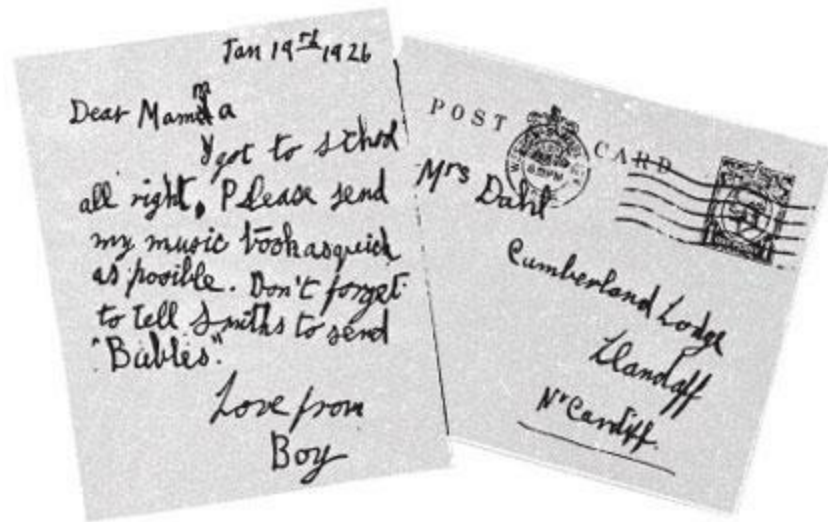 Jan 19th 1926
Dear Mamma
I got to school
all right. Please send
my music book as quick
as posible. Don't forget
to tell Smiths to send
"Bubbles".
Love from
Boy
POST CARD
6.15PM
Mrs Dahl
Cumberland Lodge
Llandaff
Nr Cardiff